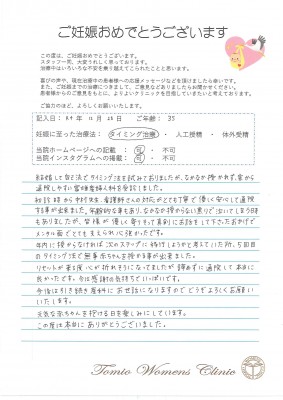 ご妊娠おめでとうございます
この度は、ご妊娠おめでとうございます。
スタッフ一同、大変うれしく思っております。
治療中はいろいろな不安を乗り越えてこられたことと思います。
喜びの声や、現在治療中の患者様への応援メッセージなどを頂けましたら幸いです。
また、ご妊娠までの治療につきまして、ご意見などありましたらお聞かせください。
患者様からのご意見をもとに、よりよいクリニックを目指していきたいと考えております。
ご協力のほど、よろしくお願いいたします。
記入日： 年 12月 28日 ご年齢： 35
妊娠に至った治療法： タイミング治療 ・ 人工授精 ・ 体外受精
当院ホームページへの記載： 可 ・ 不可
当院インスタグラムへの掲載： 可 ・ 不可
結婚して自己流でタイミング法を試みておりましたが、なかなか授かれず、家から
通院しやすい富雄産婦人科を受診しました。
初診時から中村先生、看護師さんの対応がとても丁寧で優しく安心して通院
する事が出来ました。年齢的な事もあり、なかなか授からない焦りで泣いてしまう時
もありましたが、皆様が優しく寄りそって真剣にお話をして下さったおかげで
メンタル面でとても支えられ良かったです。
年内に授からなければ次のステップに挑けしようかと考えていた所、5回目
のタイミング法で無事赤ちゃんを授かる事が出来ました。
リセットが来る度、心が折れそうになってましたが諦めずに通院して本当に
良かったです。今は感謝の気持ちでいっぱいです。
今後は引き続き産科にお世話になりますのでどうぞよろしくお願い
いたします。
元気な赤ちゃんを抱ける日を楽しみにしています。
この度は本当にありがとうございました。
Tomio Womens Clinic